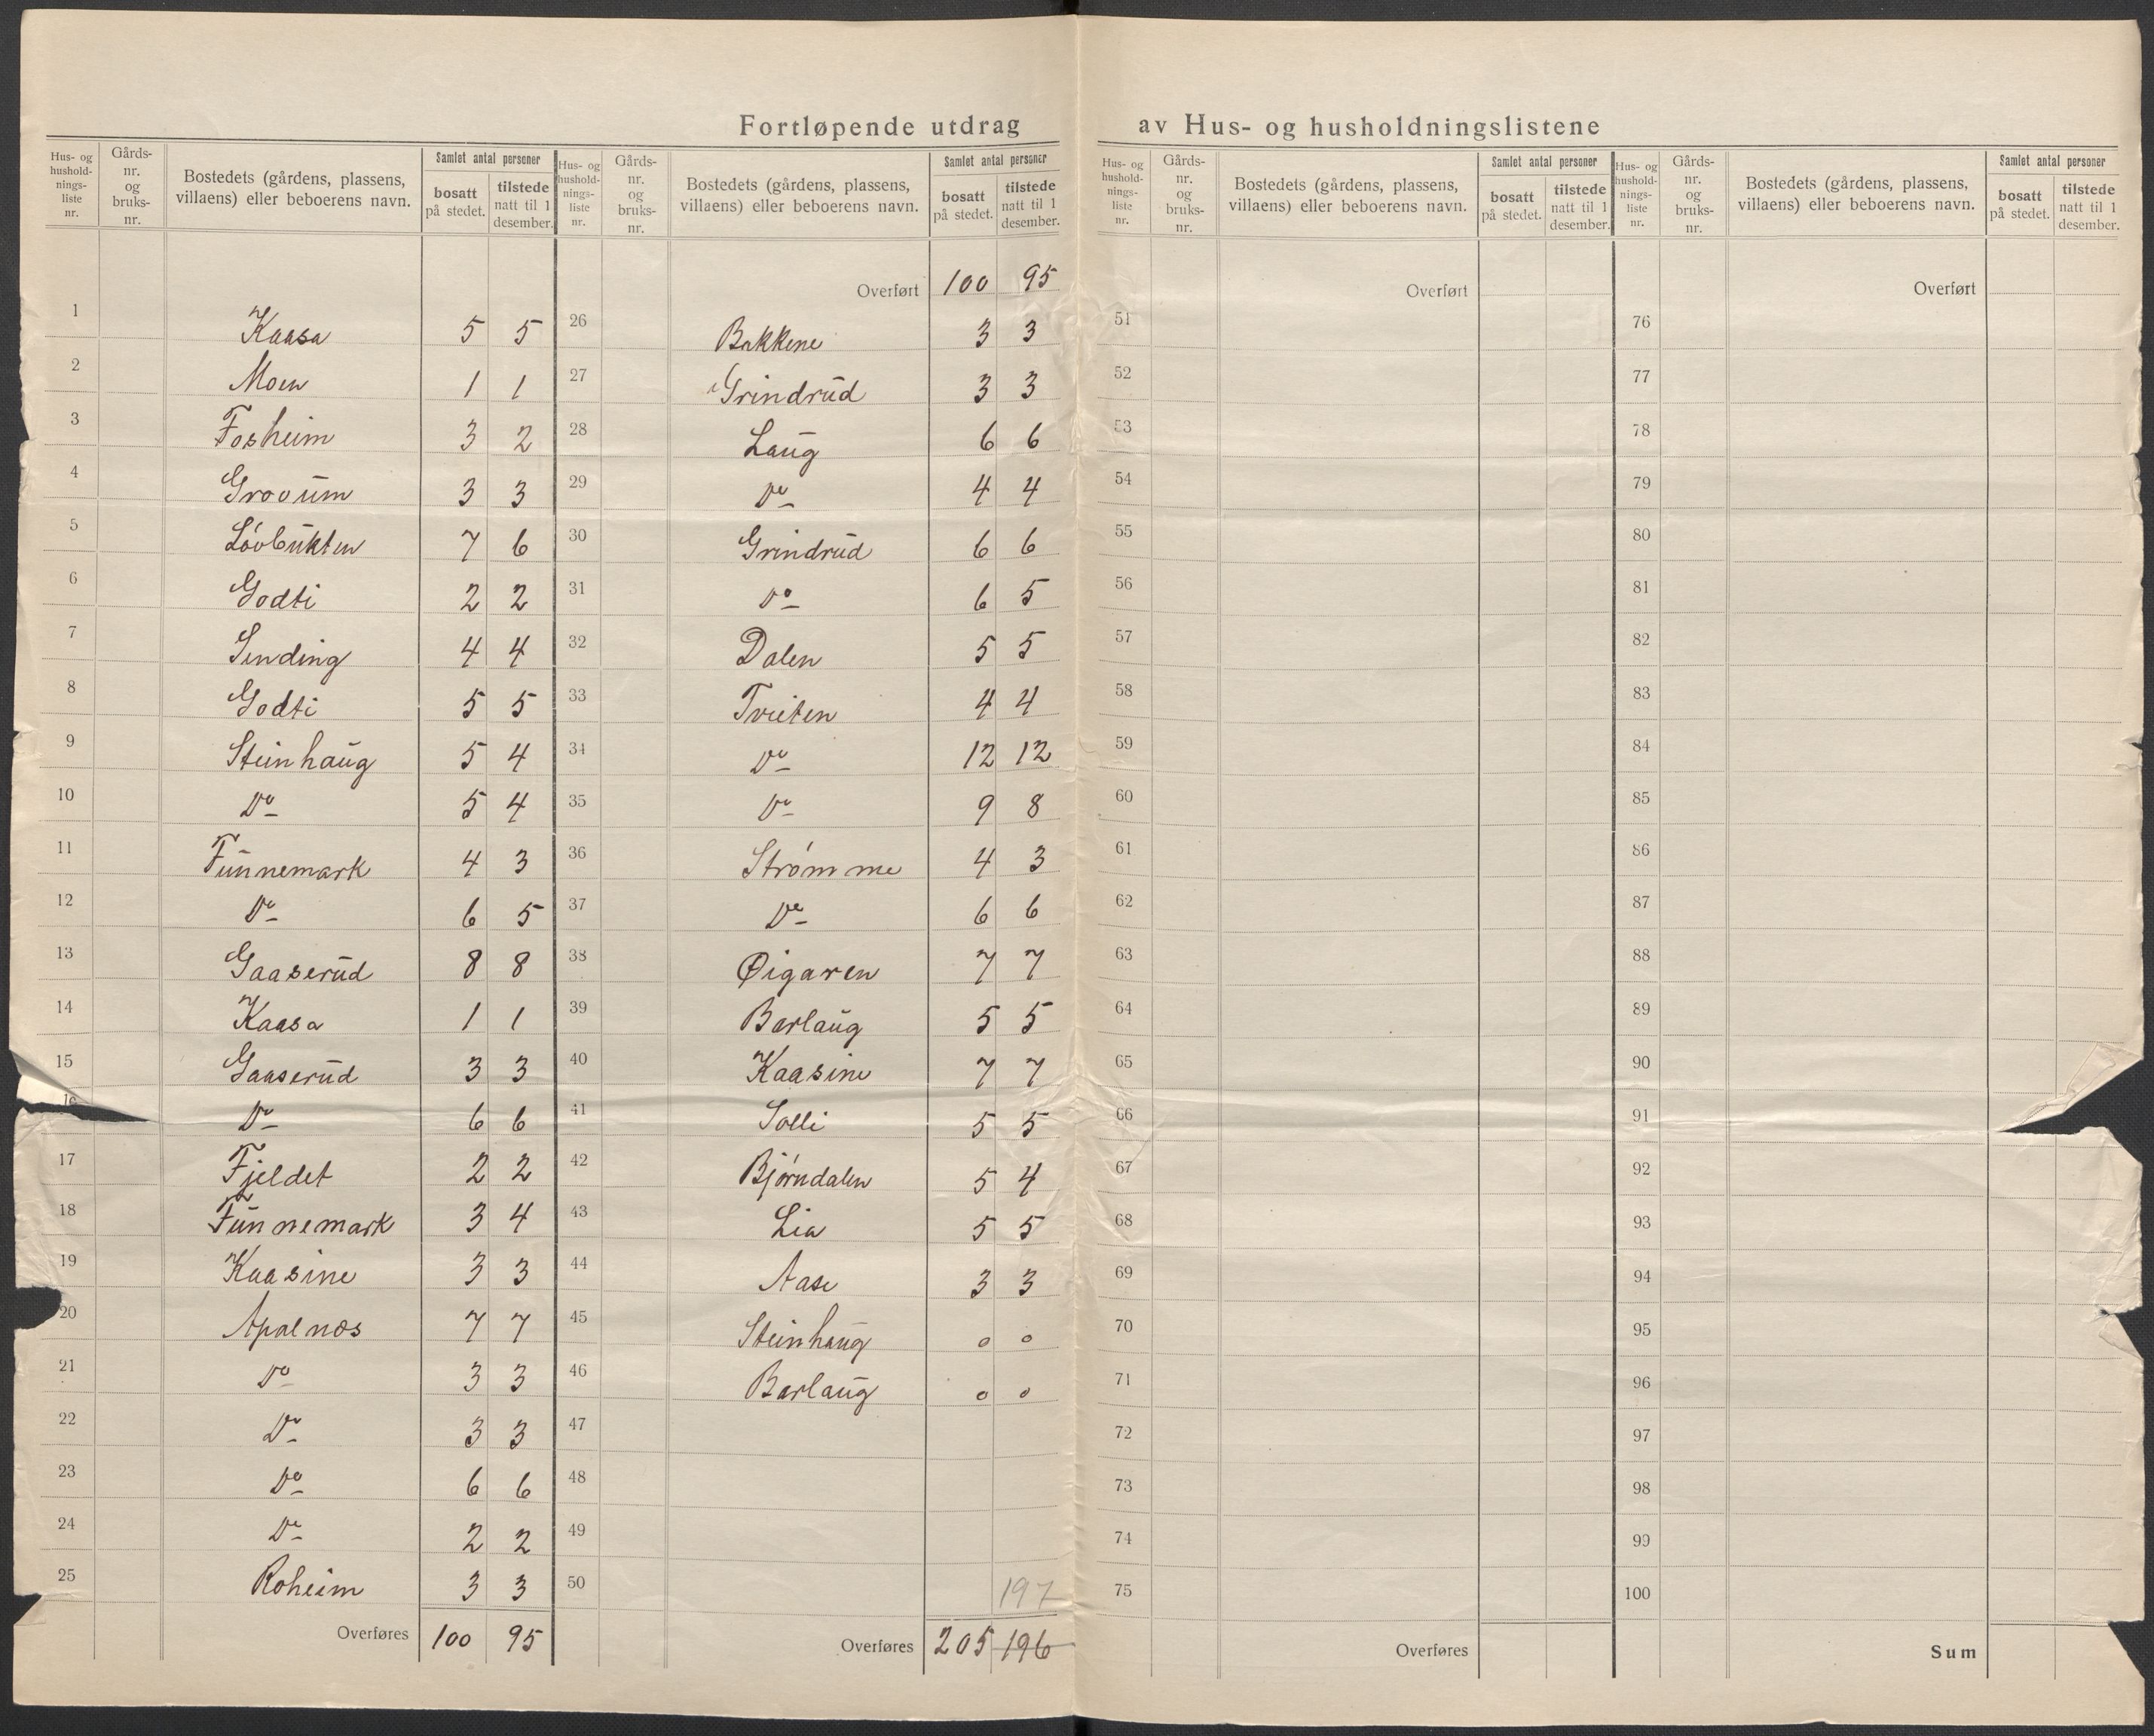 Fortløpende utdrag av Hus- og husholdningslistene
Hus- og hushold- nings- liste nr.
Gårds- nr. og bruks- nr.
Bostedets (gårdens, plassens, villaens) eller beboerens navn.
Samlet antal personer
bosatt på stedet.
tilstede natt til 1 desember.
1 Kaasa 5 5
2 Moen 1 1
3 Fosheim 3 2
4 Groven 3 3
5 Lövbukten 7 6
6 Godti 2 2
7 Sending 4 4
8 Godti 5 5
9 Steinhaug 5 4
10 Do 5 4
11 Funnemark 4 3
12 Do 6 5
13 Gaaserud 8 8
14 Kaasa 1 1
15 Gaaserud 3 3
16 Do 6 6
17 Fjeldet 2 2
18 Funnemark 3 4
19 Kaasine 3 3
20 Apalnæs 7 7
21 Do 3 3
22 Do 3 3
23 Do 6 6
24 Do 2 2
25 Roheim 3 3
Overføres 100 95
Hus- og hushold- nings- liste nr.
Gårds- nr. og bruks- nr.
Bostedets (gårdens, plassens, villaens) eller beboerens navn.
Samlet antal personer
bosatt på stedet.
tilstede natt til 1 desember.
Overført 100 95
26 Bakkene 3 3
27 Grindrud 3 3
28 Laug 6 6
29 Do 4 4
30 Grindrud 6 6
31 Do 6 5
32 Dalen 5 5
33 Tveiten 4 4
34 Do 12 12
35 Do 9 8
36 Strømme 4 3
37 Do 6 6
38 Øigaren 7 7
39 Barlaug 5 5
40 Kaasine 7 7
41 Solli 5 5
42 Bjørndalen 5 4
43 Lia 5 5
44 Aase 3 3
45 Steinhaug 0 0
46 Barlaug 0 0
47
48
49
50 197
Overføres 205 196
Hus- og hushold- nings- liste nr.
Gårds- nr. og bruks- nr.
Bostedets (gårdens, plassens, villaens) eller beboerens navn.
Samlet antal personer
bosatt på stedet.
tilstede natt til 1 desember.
Overført
51
52
53
54
55
56
57
58
59
60
61
62
63
64
65
66
67
68
69
70
71
72
73
74
75
Overføres
Hus- og hushold- nings- liste nr.
Gårds- nr. og bruks- nr.
Bostedets (gårdens, plassens, villaens) eller beboerens navn.
Samlet antal personer
bosatt på stedet.
tilstede natt til 1 desember.
Overført
76
77
78
79
80
81
82
83
84
85
86
87
88
89
90
91
92
93
94
95
96
97
98
99
100
Sum